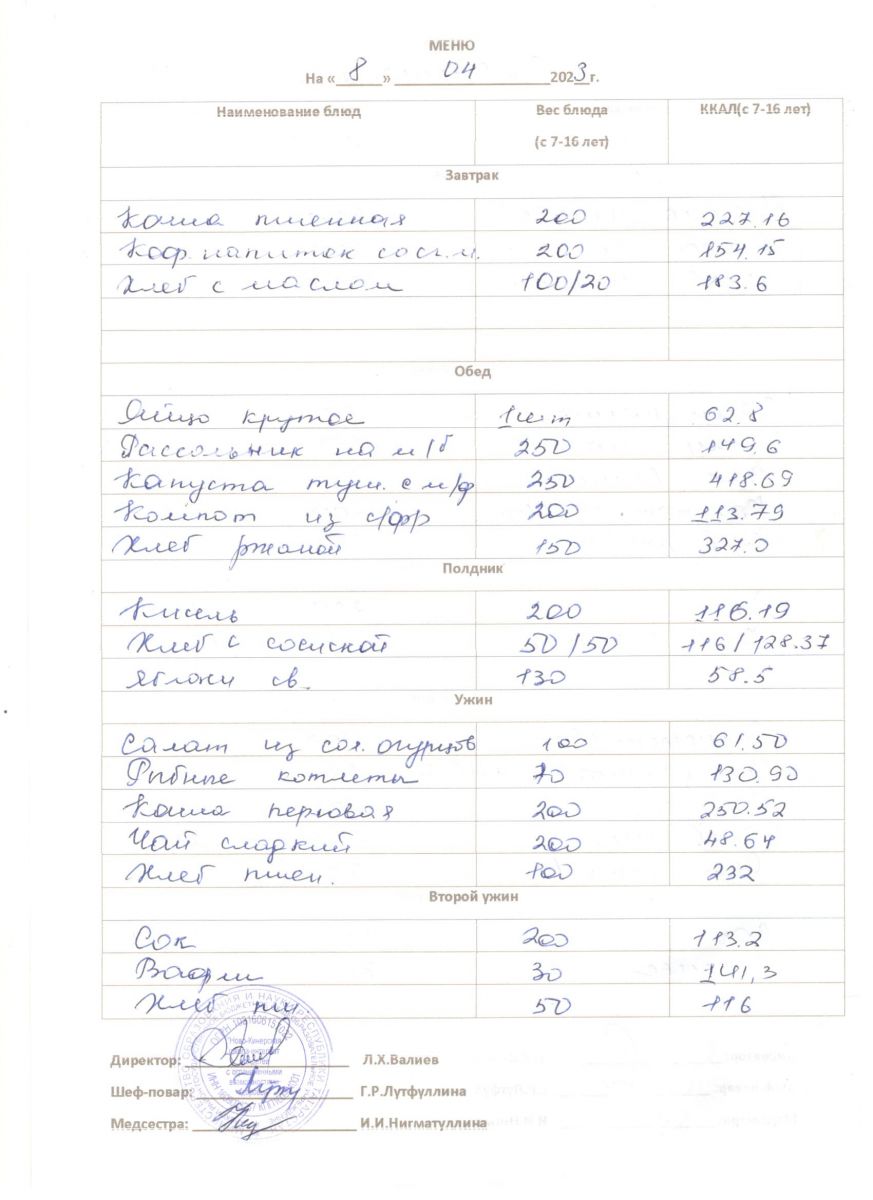 МЕНЮ
На « 8 » 04 2023г.
Наименование блюд Вес блюда (с 7-16 лет) ККАЛ(с 7-16 лет)
Завтрак
Каша пшенная 200 227.16
Коф. напиток со сг.м. 200 154.15
Хлеб с маслом 100/20 183.6
Обед
Яйцо крутое 1шт 62.8
Рассольник на м/б 250 149.6
Капуста туш. с м/ф 250 418.69
Компот из с/фр 200 113.79
Хлеб ржаной 150 327.0
Полдник
Кисель 200 116.19
Хлеб с сосиской 50/50 116/128.37
Яблоки св. 130 58.5
Ужин
Салат из сол. огурцов 100 61.50
Рыбные котлеты 70 130.90
Каша перловая 200 250.52
Чай сладкий 200 48.64
Хлеб пшен. 100 232
Второй ужин
Сок 200 113.2
Вафли 30 141,3
Хлеб пш. 50 116
Директор: Л.Х.Валиев
Шеф-повар: Г.Р.Лутфуллина
Медсестра: И.И.Нигматуллина